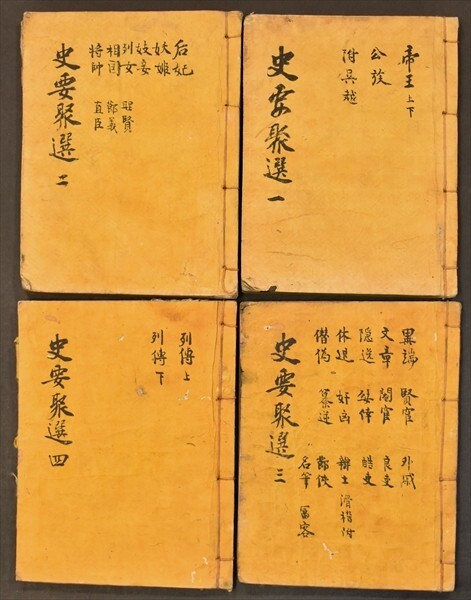 帝王 上下
公族
附吳越
史要聚選 一
后妃
妖姬
妓妾
列女 聖賢
相國 節義
將帥 直臣
史要聚選 二
異端 賢宦 外戚
文章 閹宦 良吏
隱逸 嬖倖 酷吏
休退 奸凶 辯士 滑稽附
僭僞 簒逆
名筆
史要聚選 三
列傳 上
列傳 下
史要聚選 四